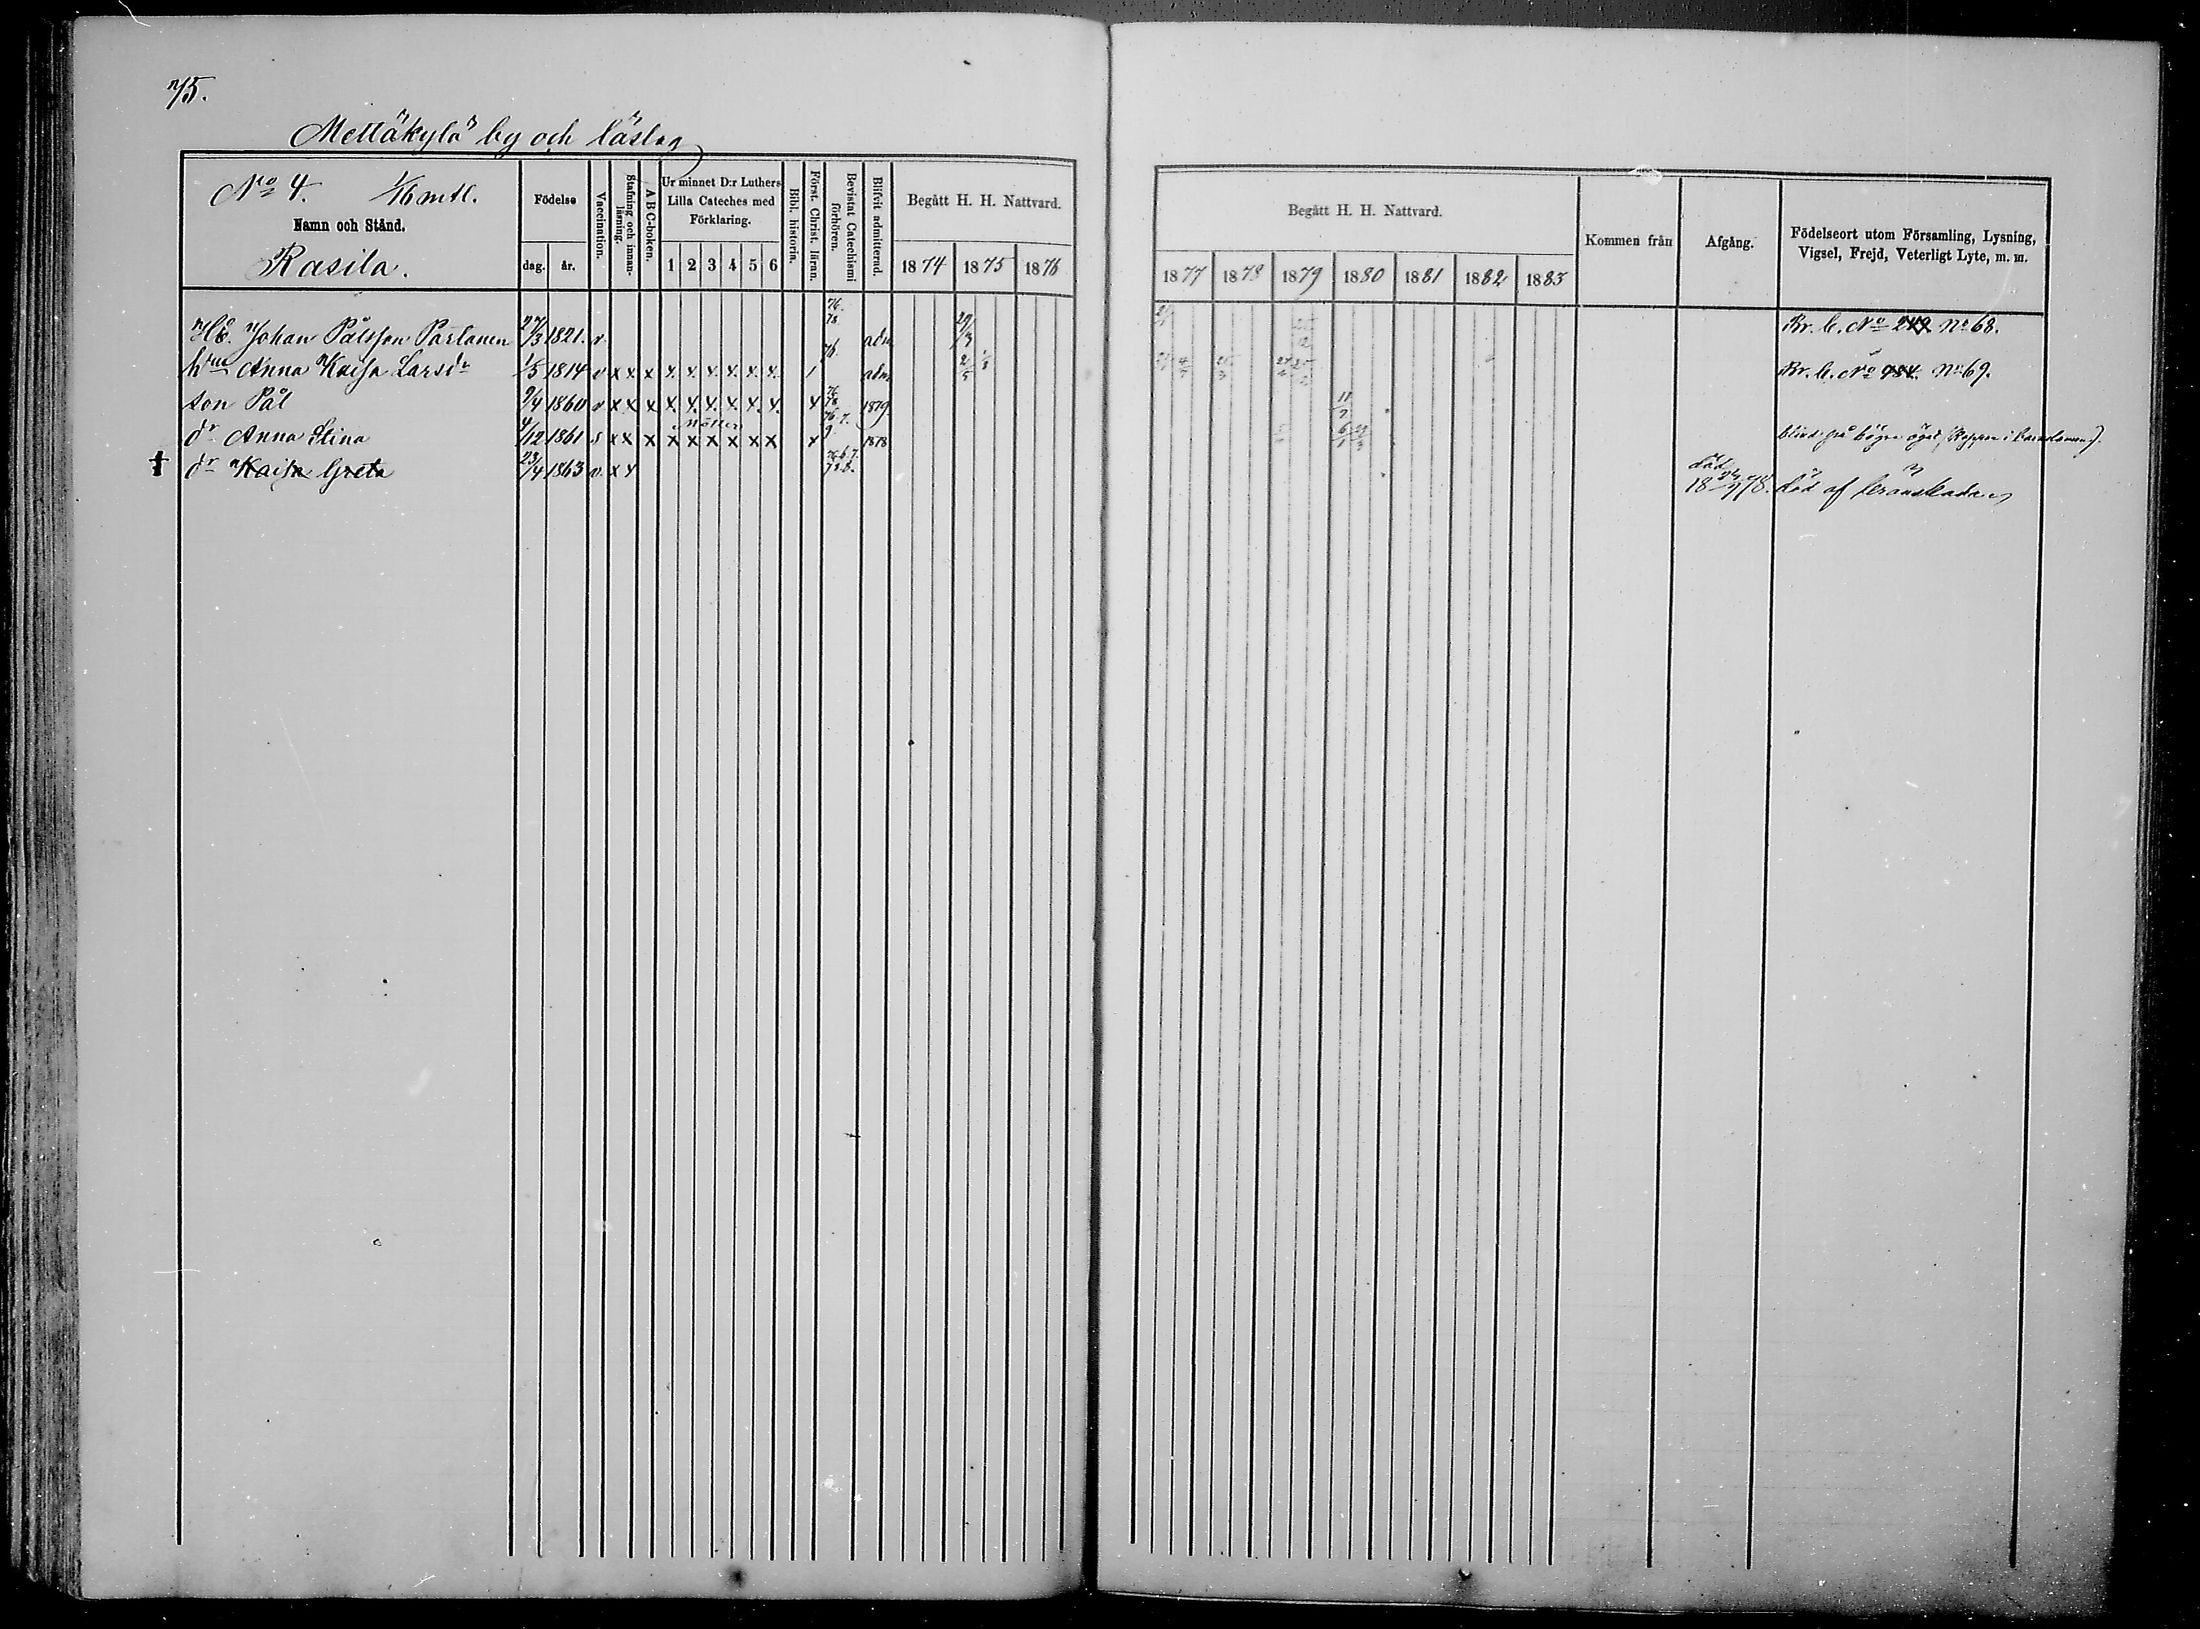 75.
Mettäkylä by och läslag
No 4. 1/16 mtl.
Namn och Stånd.
Rasila.
Födelse
dag. år.
Vaccination.
Stafning och innan-
läsning.
A B C-boken.
Ur minnet D:r Luthers
Lilla Cateches med
Förklaring.
1 2 3 4 5 6
Bibl. historia.
Först. Christ. läran.
Bevistat Catechismi
förhören.
Blifvit admitterad.
Begått H. H. Nattvard.
1874 1875 1876
Begått H. H. Nattvard.
1877 1878 1879 1880 1881 1882 1883
Kommen från
Afgång.
Födelseort utom Församling, Lysning,
Vigsel, Frejd, Veterligt Lyte, m. m.
Johan Pålsson Partanen 27/3 1821. v 76. 78 adm 29/3 Kr. b. No 249 No 68.
hnu Anna Kaisa Larsdr 1/5 1814 v x x x x. x. x. x. x. x. 1 76. adm 2/5 Kr. b. No 984. No 69.
son Pål 9/4 1860 v x x x x. x. x. x. x. x. x 76 78 1879 11/7
dr Anna Stina 4/12 1861 s x x x x x x x x x x 76. 7. 9. 1878 6/1 blind på högra ögat
dr Kaisa Greta 23/4 1863 v. x x 76. 7. 78. död 18 78. död af